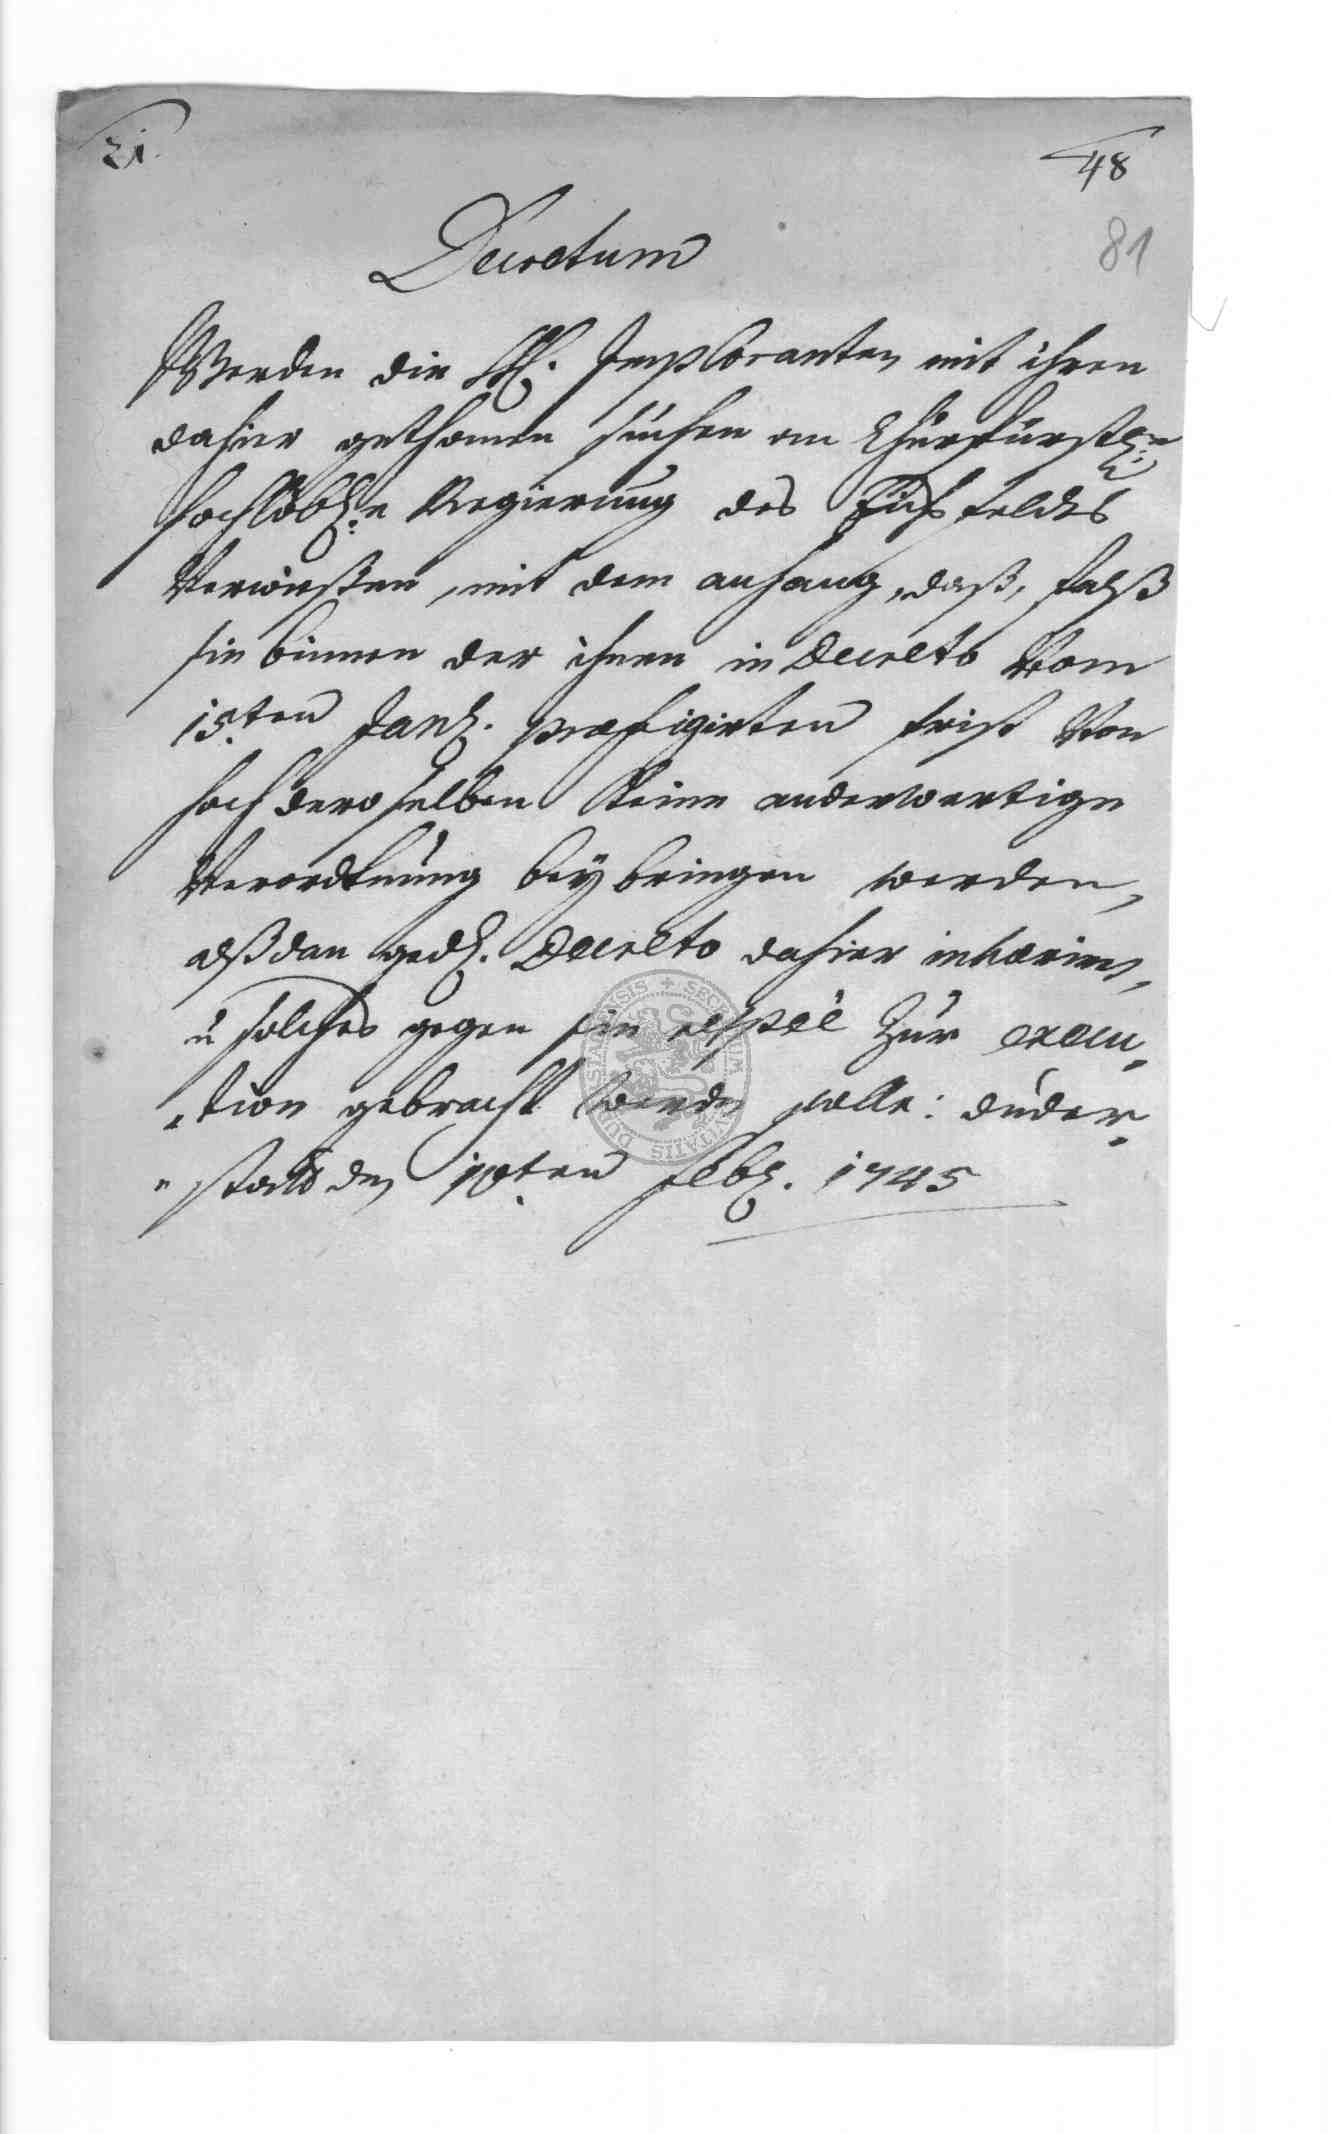 21.
48
81
Decretum
Werden die Hl. Imploranten mit ihren
dahier gethanen suchen an Churfürstl:r
hochlöbl:n Regierung des Eichsfeldts
Verwießen, mit dem anhang, daß, falß
sie binnen der ihnen in Decreto Vom
15.ten Janl. præfigirten frist Von
hoch deroselben keine anderwertige
Verordtnung beybringen werden,
alßdan gedl. Decreto dahier inhærirt,
u solches gegen sie respèe Zur execu„
„tion gebracht werden solle: duder„
„statt den 10ten febl. 1745
SECRETUM CIVITATIS DUDERSTADENSIS